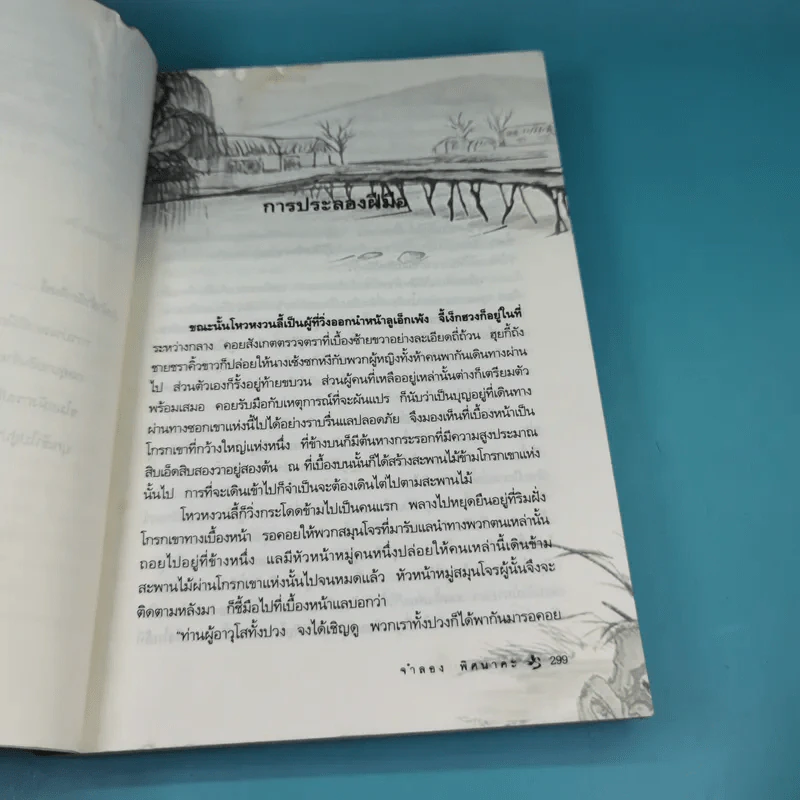 การประลองฝีมือ
ขณะนั้นโหวหงวนลี้เป็นผู้ที่วิ่งออกนำหน้าลูเอ็กเพ้ง จี้เง็กฮวงก็อยู่ในที่
ระหว่างกลาง คอยสังเกตตรวจตราที่เบื้องซ้ายขวาอย่างละเอียดถี่ถ้วน ฮุยกี้ถัง
ชายชราคิ้วขาวก็ปล่อยให้นางเซ้งซกหงีกับพวกผู้หญิงทั้งห้าคนพากันเดินทางผ่าน
ไป ส่วนตัวเองก็รั้งอยู่ท้ายขบวน ส่วนผู้คนที่เหลืออยู่เหล่านั้นต่างก็เตรียมตัว
พร้อมเสมอ คอยรับมือกับเหตุการณ์ที่จะผันแปร ก็นับว่าเป็นบุญอยู่ที่เดินทาง
ผ่านทางซอกเขาแห่งนี้ไปได้อย่างราบรื่นแลปลอดภัย จึงมองเห็นที่เบื้องหน้าเป็น
โกรกเขาที่กว้างใหญ่แห่งหนึ่ง ที่ข้างบนก็มีต้นหางกระรอกที่มีความสูงประมาณ
สิบเอ็ดสิบสองวาอยู่สองต้น ณ ที่เบื้องบนนั้นก็ได้สร้างสะพานไม้ข้ามโกรกเขาแห่ง
นั้นไป การที่จะเดินเข้าไปก็จำเป็นจะต้องเดินไต่ไปตามสะพานไม้
โหวหงวนลี้ก็วิ่งกระโดดข้ามไปเป็นคนแรก พลางไปหยุดยืนอยู่ที่ริมฝั่ง
โกรกเขาทางเบื้องหน้า รอคอยให้พวกสมุนโจรที่มารับแลนำทางพวกตนเหล่านั้น
ถอยไปอยู่ที่ข้างหนึ่ง แลมีหัวหน้าหมู่คนหนึ่งปล่อยให้คนเหล่านี้เดินข้าม
สะพานไม้ผ่านโกรกเขาแห่งนั้นไปจนหมดแล้ว หัวหน้าหมู่สมุนโจรผู้นั้นจึงจะ
ติดตามหลังมา ก็ชี้มือไปที่เบื้องหน้าแลบอกว่า
"ท่านผู้อาวุโสทั้งปวง จงได้เชิญดู พวกเราทั้งปวงก็ได้พากันมารอคอย
จำลอง พิศนาคะ 299